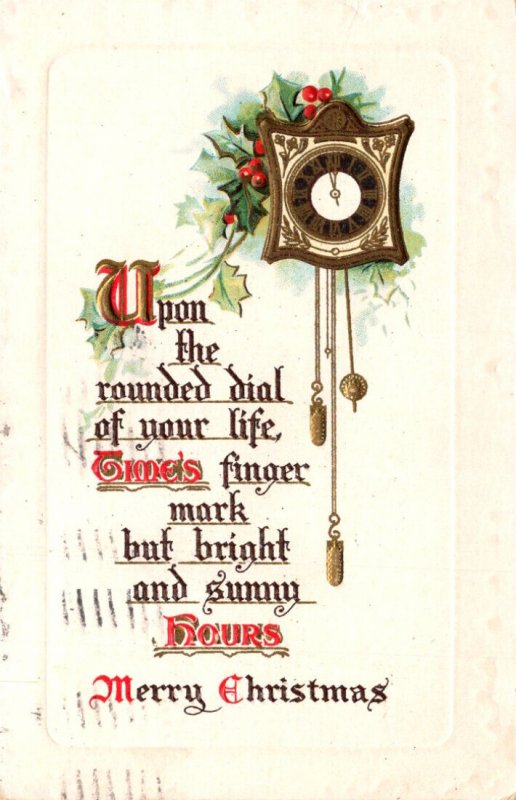 Upon
the
rounded dial
of your life,
Time's finger
mark
but bright
and sunny
Hours
Merry Christmas